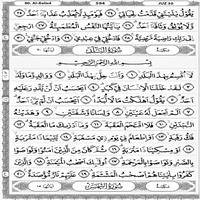 90. Al-Balad 594 JUZ 30
يَقُولُ يَٰلَيْتَنِى قَدَّمْتُ لِحَيَاتِى ٢٤ فَيَوْمَئِذٍ لَّا يُعَذِّبُ عَذَابَهُۥٓ أَحَدٌ ٢٥
وَلَا يُوثِقُ وَثَاقَهُۥٓ أَحَدٌ ٢٦ يَٰٓأَيَّتُهَا ٱلنَّفْسُ ٱلْمُطْمَئِنَّةُ ٢٧ ٱرْجِعِىٓ
إِلَىٰ رَبِّكِ رَاضِيَةً مَّرْضِيَّةً ٢٨ فَٱدْخُلِى فِى عِبَٰدِى ٢٩ وَٱدْخُلِى جَنَّتِى ٣٠
سُورَةُ الْبَلَدِ
بِسْمِ ٱللَّهِ ٱلرَّحْمَٰنِ ٱلرَّحِيمِ
لَآ أُقْسِمُ بِهَٰذَا ٱلْبَلَدِ ١ وَأَنتَ حِلٌّۢ بِهَٰذَا ٱلْبَلَدِ ٢ وَوَالِدٍ وَمَا وَلَدَ ٣
لَقَدْ خَلَقْنَا ٱلْإِنسَٰنَ فِى كَبَدٍ ٤ أَيَحْسَبُ أَن لَّن يَقْدِرَ عَلَيْهِ أَحَدٌ ٥
يَقُولُ أَهْلَكْتُ مَالًا لُّبَدًا ٦ أَيَحْسَبُ أَن لَّمْ يَرَهُۥٓ أَحَدٌ ٧
أَلَمْ نَجْعَل لَّهُۥ عَيْنَيْنِ ٨ وَلِسَانًا وَشَفَتَيْنِ ٩ وَهَدَيْنَٰهُ ٱلنَّجْدَيْنِ ١٠
فَلَا ٱقْتَحَمَ ٱلْعَقَبَةَ ١١ وَمَآ أَدْرَىٰكَ مَا ٱلْعَقَبَةُ ١٢
فَكُّ رَقَبَةٍ ١٣ أَوْ إِطْعَٰمٌ فِى يَوْمٍ ذِى مَسْغَبَةٍ ١٤ يَتِيمًا ذَا مَقْرَبَةٍ ١٥
أَوْ مِسْكِينًا ذَا مَتْرَبَةٍ ١٦ ثُمَّ كَانَ مِنَ ٱلَّذِينَ ءَامَنُوا۟ وَتَوَاصَوْا۟
بِٱلصَّبْرِ وَتَوَاصَوْا۟ بِٱلْمَرْحَمَةِ ١٧ أُو۟لَٰٓئِكَ أَصْحَٰبُ ٱلْمَيْمَنَةِ ١٨
وَٱلَّذِينَ كَفَرُوا۟ بِـَٔايَٰتِنَا هُمْ أَصْحَٰبُ ٱلْمَشْـَٔمَةِ ١٩ عَلَيْهِمْ نَارٌ مُّؤْصَدَةٌۢ ٢٠
سُورَةُ الشَّمْسِ